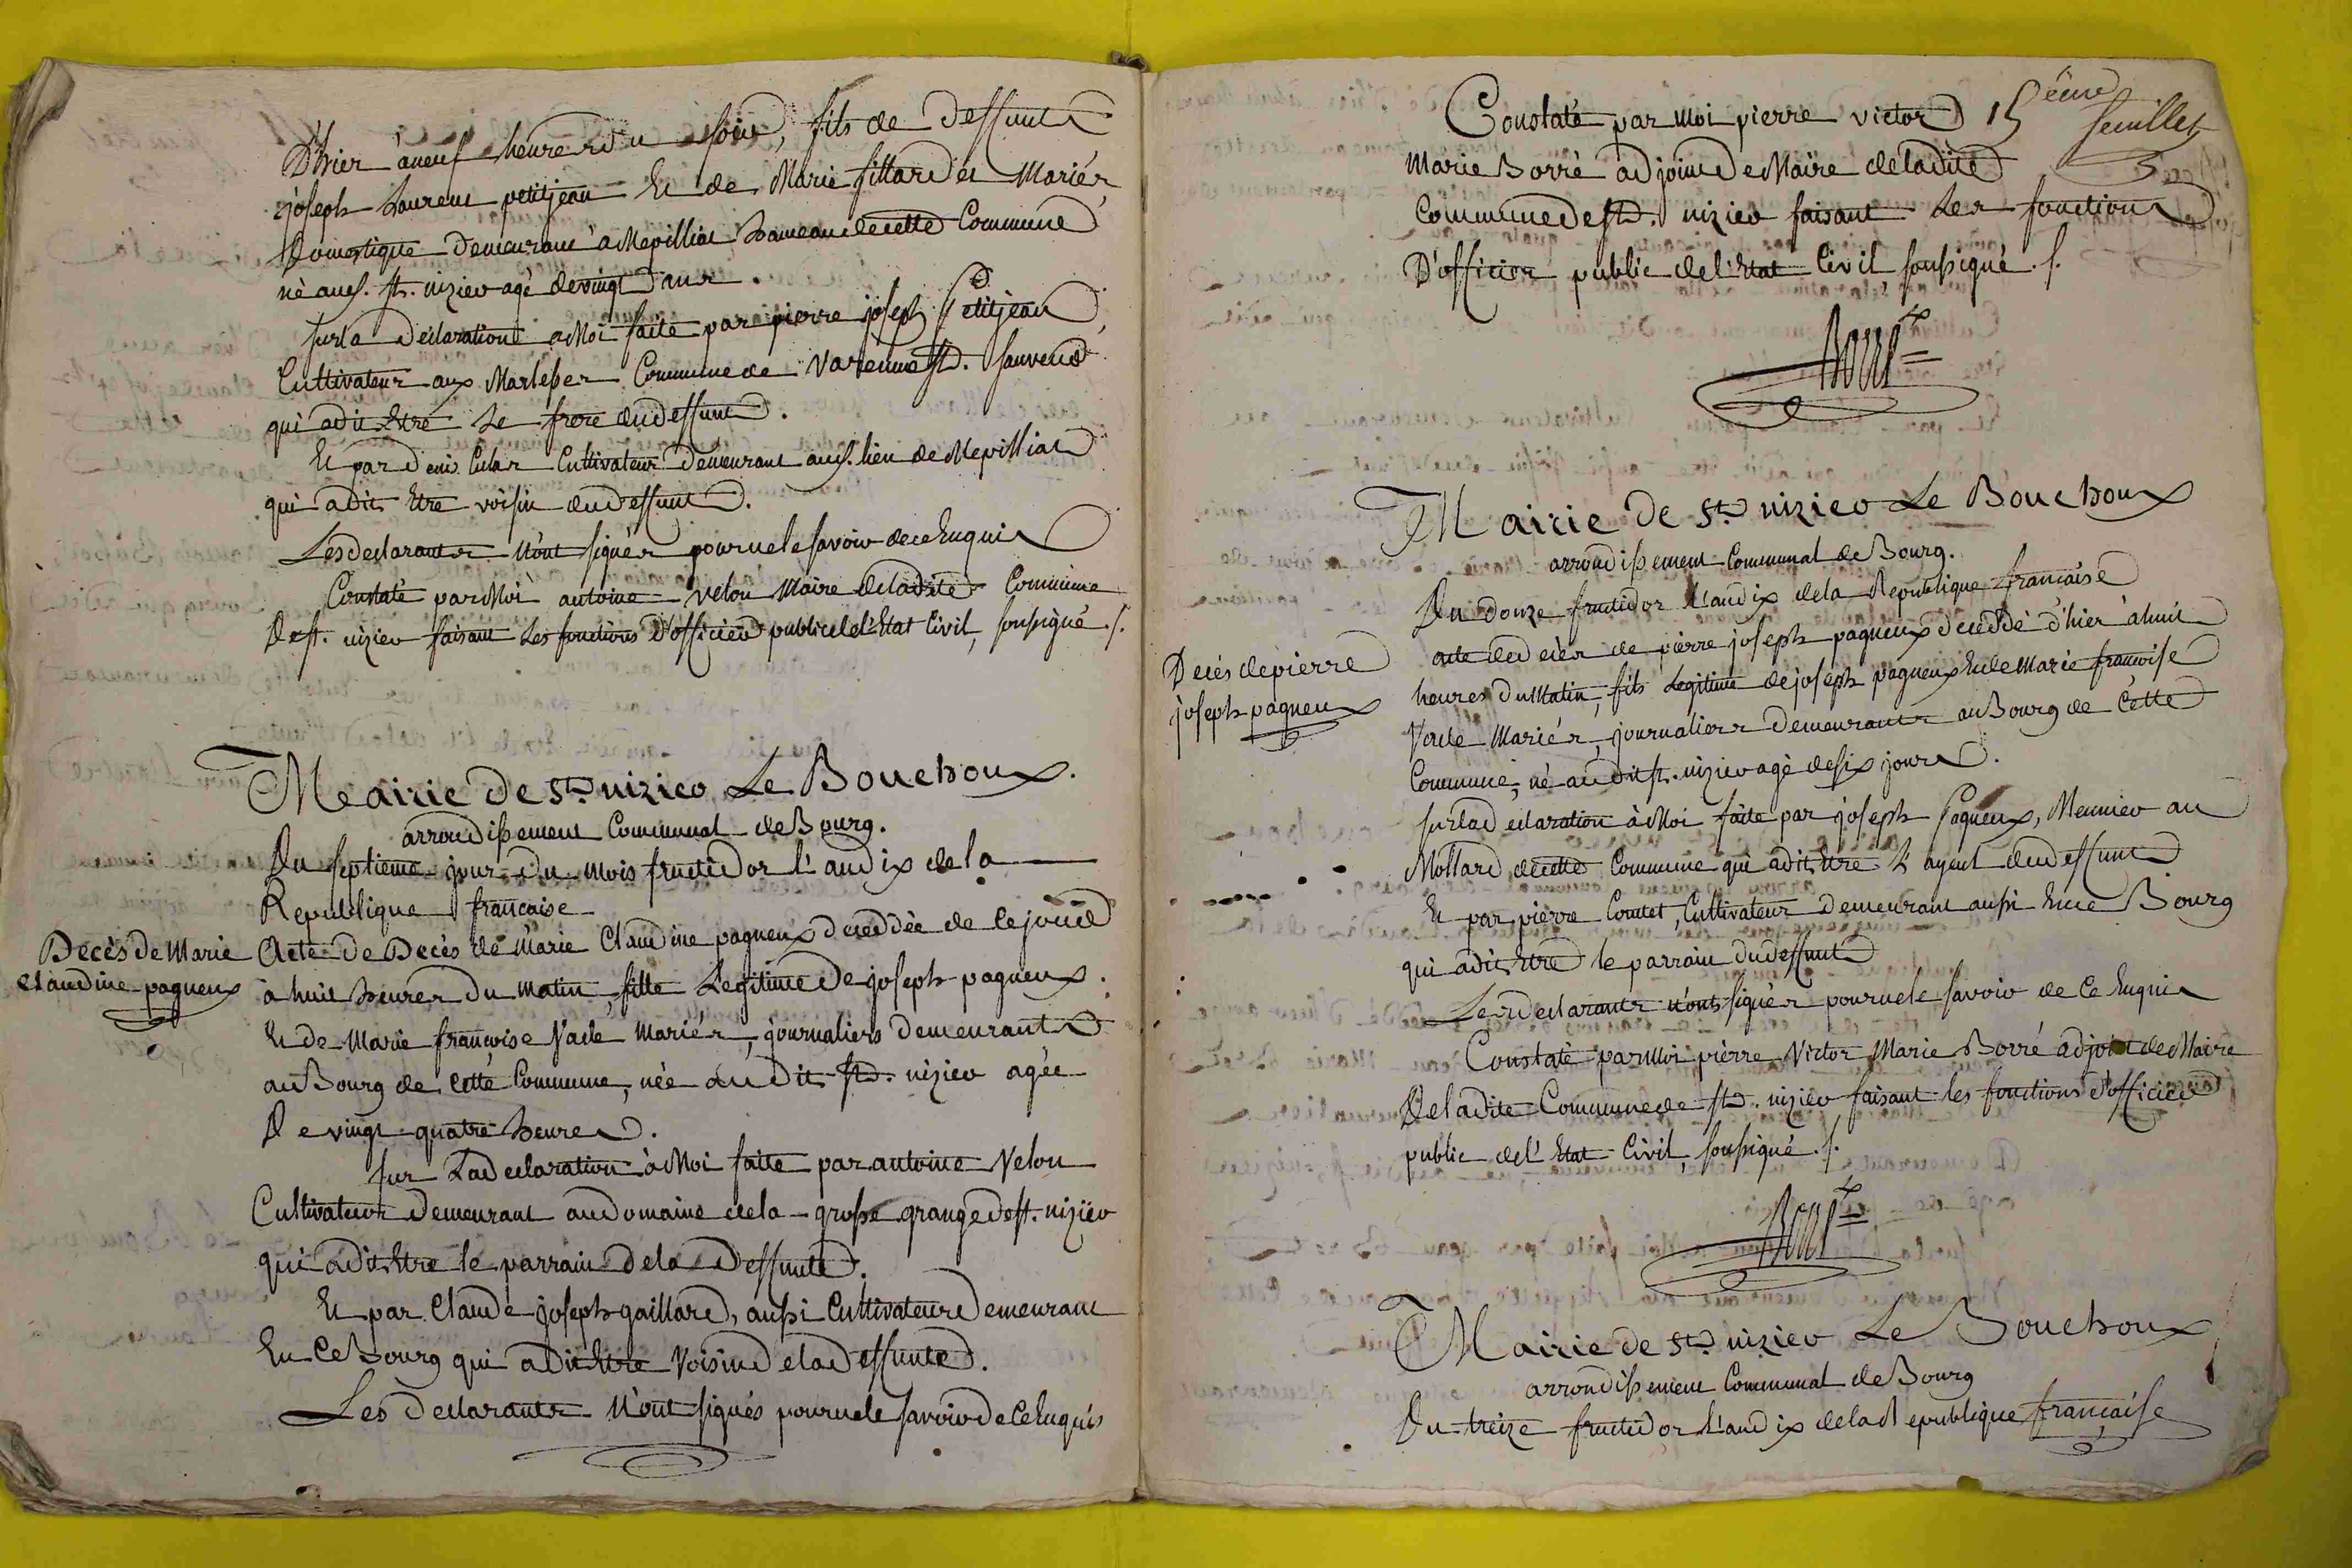 D'hier à neuf heures du soir, fils de deffunt
joseph Laurent petitjean Et de Marie fillardet Mariés
Domestique demeurant à Mepilliat hameau de cette Commune
né aud. st. nizier agé de vingt ans.
sur la declaration à Moi faite par pierre joseph Petitjean
Cultivateur aux Communede Varenne st. sauveur
qui a dit Etre le frere du deffunt.
Et par denis Cultivateur demeurant aud. lieu de Mepilliat
qui a dit Etre voisin du deffunt.
Les declarants n'ont signés pour ne le savoir de ce Enquis
Constaté par Moi antoine Velon Maire de ladite Commune
de st. nizier faisant les fonctions d'officier public de l'Etat Civil, soussigné ./.
Mairie de st. nizier Le Bouchoux.
arrondissement Communal de Bourg.
Du septieme jour du mois fructidor l'an dix de la
Republique francaise
Decès de Marie
Claudine pagneux
Acte de Decès de Marie Claudine pagneux deceddée de ce jourd
à huit heures du matin fille Legitime de joseph pagneux.
Et de Marie francoise Vacle Mariés, journaliers demeurants
au Bourg de cette Commune, née au dit st. nizier agée
De vingt quatre heures.
sur La declaration à Moi faite par antoine Velon
Cultivateur demeurant au domaine de la grosse grange de st. nizier
qui a dit Etre le parrain de la deffunte.
Et par Claude joseph gaillard, aussi Cultivateur demeurant
En Ce Bourg qui a dit Etre Voisin de la deffunte.
Les declarants N'ont signés pour ne le savoir de Ce Enquis
15ème
feuillet
Constaté par Moi pierre victor
Marie Borré adjoint de Maire de ladite
Commune de st. nizier faisant les fonctions
D'officier public de l'Etat Civil soussigné ./.
Mairie de st. nizier Le Bouchoux
arrondissement Communal de Bourg.
Du douze fructidor L'an dix de la Republique francaise
Decès de pierre
joseph pagneux
acte de decès de pierre joseph pagneux deceddé d'hier à huit
heures du Matin, fils Legitime de joseph pagneux Et de Marie francoise
Vacle Mariés, journaliers demeurants au Bourg de Cette
Commune, né au dit st. nizier agé de six jours.
sur la declaration à Moi faite par joseph Pagneux, Meunier au
Mollard de cette Commune qui a dit Etre L'ayeul du deffunt
Et par pierre Comtet, Cultivateur demeurant aussi En ce Bourg
qui a dit Etre le parrain du deffunt
Les declarants n'ont signés pour ne le savoir de Ce Enquis
Constaté par Moi pierre Victor Marie Borré adjoint de Maire
De ladite Commune de st. nizier faisant les fonctions d'officier
public de l'Etat Civil, soussigné ./.
Mairie de st. nizier Le Bouchoux
arrondissement Communal de Bourg
Du treize fructidor L'an dix de la Republique francaise